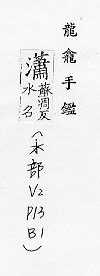 龍龕手鑑
瀟
蘇凋反
水名
(水部
V2
P13
B1)